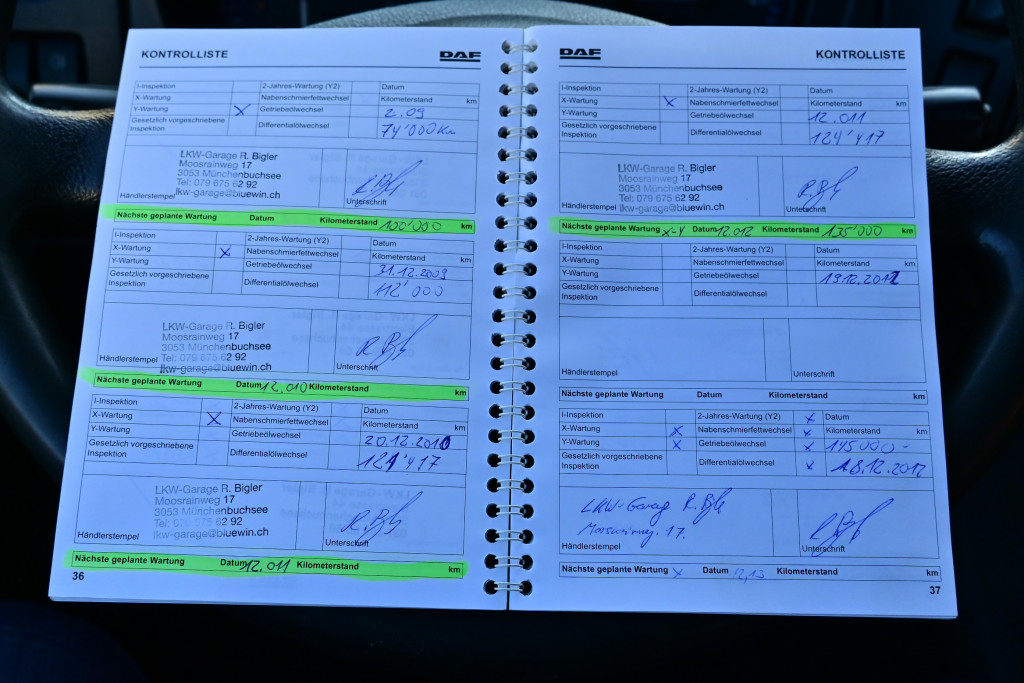 KONTROLLISTE DAF
I-Inspektion 2-Jahres-Wartung (Y2) Datum
X-Wartung Nabenschmierfettwechsel Kilometerstand km
Y-Wartung X Getriebeölwechsel 2.09
Gesetzlich vorgeschriebene Inspektion Differentialölwechsel 74'000 Km
LKW-Garage R. Bigler
Moosrainweg 17
3053 Münchenbuchsee
Tel: 079 675 62 92
lkw-garage@bluewin.ch
Händlerstempel Unterschrift
Nächste geplante Wartung Datum Kilometerstand 100'000 km
I-Inspektion 2-Jahres-Wartung (Y2) Datum
X-Wartung X Nabenschmierfettwechsel Kilometerstand km
Y-Wartung Getriebeölwechsel 31.12.2009
Gesetzlich vorgeschriebene Inspektion Differentialölwechsel 112'000
LKW-Garage R. Bigler
Moosrainweg 17
3053 Münchenbuchsee
Tel: 079 675 62 92
lkw-garage@bluewin.ch
Händlerstempel Unterschrift
Nächste geplante Wartung Datum 12.010 Kilometerstand km
I-Inspektion 2-Jahres-Wartung (Y2) Datum
X-Wartung X Nabenschmierfettwechsel Kilometerstand km
Y-Wartung Getriebeölwechsel 20.12.2010
Gesetzlich vorgeschriebene Inspektion Differentialölwechsel 121'417
LKW-Garage R. Bigler
Moosrainweg 17
3053 Münchenbuchsee
Tel: 079 675 62 92
lkw-garage@bluewin.ch
Händlerstempel Unterschrift
Nächste geplante Wartung Datum 12.011 Kilometerstand km
36
DAF KONTROLLISTE
I-Inspektion 2-Jahres-Wartung (Y2) Datum
X-Wartung X Nabenschmierfettwechsel Kilometerstand km
Y-Wartung Getriebeölwechsel 12.011
Gesetzlich vorgeschriebene Inspektion Differentialölwechsel 124'417
LKW-Garage R. Bigler
Moosrainweg 17
3053 Münchenbuchsee
Tel: 079 675 62 92
lkw-garage@bluewin.ch
Händlerstempel Unterschrift
Nächste geplante Wartung X-Y Datum 12.012 Kilometerstand 135'000 km
I-Inspektion 2-Jahres-Wartung (Y2) Datum
X-Wartung Nabenschmierfettwechsel Kilometerstand km
Y-Wartung Getriebeölwechsel 19.12.2012
Gesetzlich vorgeschriebene Inspektion Differentialölwechsel
Händlerstempel Unterschrift
Nächste geplante Wartung Datum Kilometerstand km
I-Inspektion 2-Jahres-Wartung (Y2) X Datum
X-Wartung X Nabenschmierfettwechsel X Kilometerstand km
Y-Wartung X Getriebeölwechsel X 145000.-
Gesetzlich vorgeschriebene Inspektion Differentialölwechsel X 18.12.2012
LKW-Garag
17.
Händlerstempel Unterschrift
Nächste geplante Wartung X Datum 12,13 Kilometerstand km
37